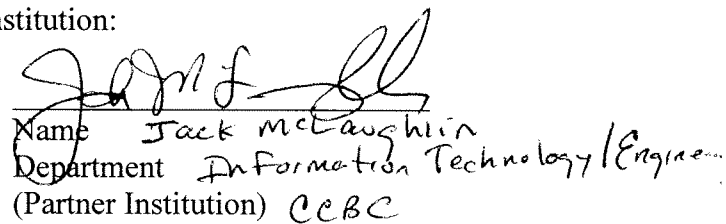 stitution:
Name Jack McLaughlin
Department Information Technology/Engine...
(Partner Institution) CCBC